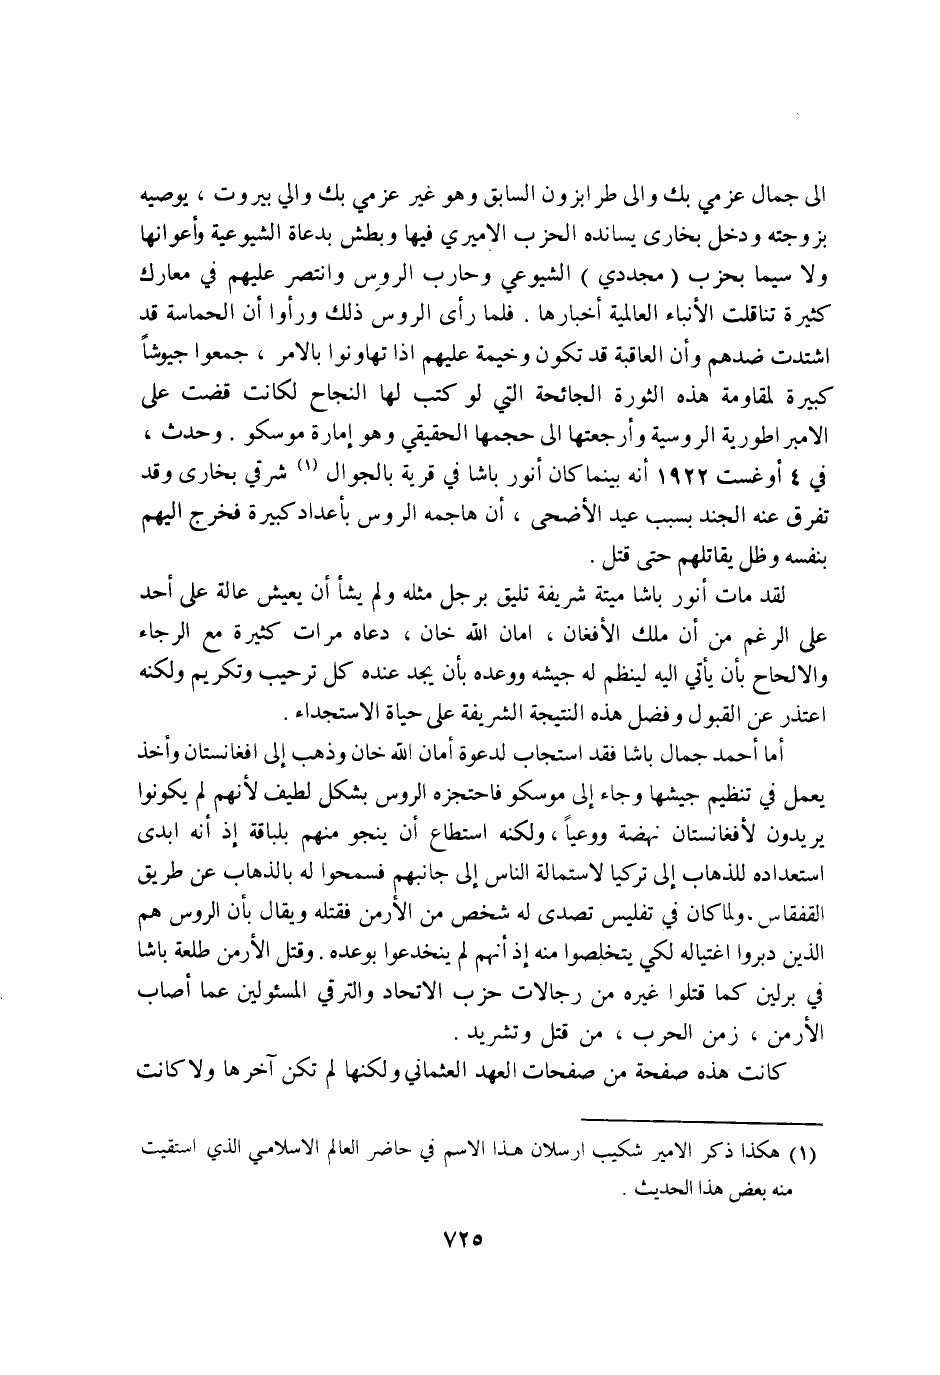 الى جمال عزمي بك والى طرابزون السابق وهو غير عزمي بك والي بيروت ، يوصيه
بزوجته ودخل بخارى يسانده الحزب الاميري فيها وبطش بدعاة الشيوعية وأعوانها
ولا سيما بحزب ( مجددي ) الشيوعي وحارب الروس وانتصر عليهم في معارك
كثيرة تناقلت الأنباء العالمية أخبارها . فلما رأى الروس ذلك ورأوا أن الحماسة قد
اشتدت ضدهم وأن العاقبة قد تكون وخيمة عليهم اذا تهاونوا بالامر ، جمعوا جيوشاً
كبيرة لمقاومة هذه الثورة الجائحة التي لو كتب لها النجاح لكانت قضت على
الامبراطورية الروسية وأرجعتها الى حجمها الحقيقي وهو إمارة موسكو . وحدث ،
في ٤ أوغست ١٩٢٢ أنه بينما كان أنور باشا في قرية بالجوال (١) شرقي بخارى وقد
تفرق عنه الجند بسبب عيد الأضحى ، أن هاجمه الروس بأعداد كبيرة فخرج اليهم
بنفسه وظل يقاتلهم حتى قتل .
لقد مات أنور باشا ميتة شريفة تليق برجل مثله ولم يشأ أن يعيش عالة على أحد
على الرغم من أن ملك الأفغان ، امان الله خان ، دعاه مرات كثيرة مع الرجاء
والالحاح بأن يأتي اليه لينظم له جيشه ووعده بأن يجد عنده كل ترحيب وتكريم ولكنه
اعتذر عن القبول وفضل هذه النتيجة الشريفة على حياة الاستجداء .
أما أحمد جمال باشا فقد استجاب لدعوة أمان الله خان وذهب إلى افغانستان وأخذ
يعمل في تنظيم جيشها وجاء إلى موسكو فاحتجزه الروس بشكل لطيف لأنهم لم يكونوا
يريدون لأفغانستان نهضة ووعياً ، ولكنه استطاع أن ينجو منهم بلباقة إذ أنه ابدى
استعداده للذهاب إلى تركيا لاستمالة الناس إلى جانبهم فسمحوا له بالذهاب عن طريق
القفقاس . ولما كان في تفليس تصدى له شخص من الأرمن فقتله ويقال بأن الروس هم
الذين دبروا اغتياله لكي يتخلصوا منه إذ أنهم لم ينخدعوا بوعده . وقتل الأرمن طلعة باشا
في برلين كما قتلوا غيره من رجالات حزب الاتحاد والترقي المسئولين عما أصاب
الأرمن ، زمن الحرب ، من قتل وتشريد .
كانت هذه صفحة من صفحات العهد العثماني ولكنها لم تكن آخرها ولا كانت
(١) هكذا ذكر الامير شكيب ارسلان هذا الاسم في حاضر العالم الاسلامي الذي استقيت
منه بعض هذا الحديث .
٧٢٥